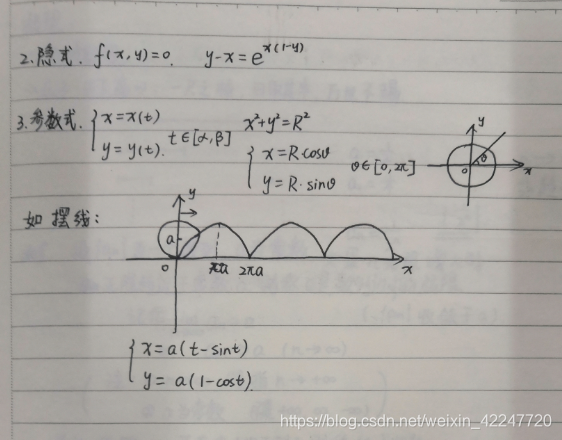 2.隐式. f(x,y)=0. y-x=e^{x(1-y)}
3.参数式. { x=x(t) y=y(t). t∈[α,β] x²+y²=R² { x=R·cosθ y=R·sinθ θ∈[0,2π] y θ o x
如 摆线: y a o πa 2πa x
{ x=a(t-sint) y=a(1-cost).
https://blog.csdn.net/weixin_42247720